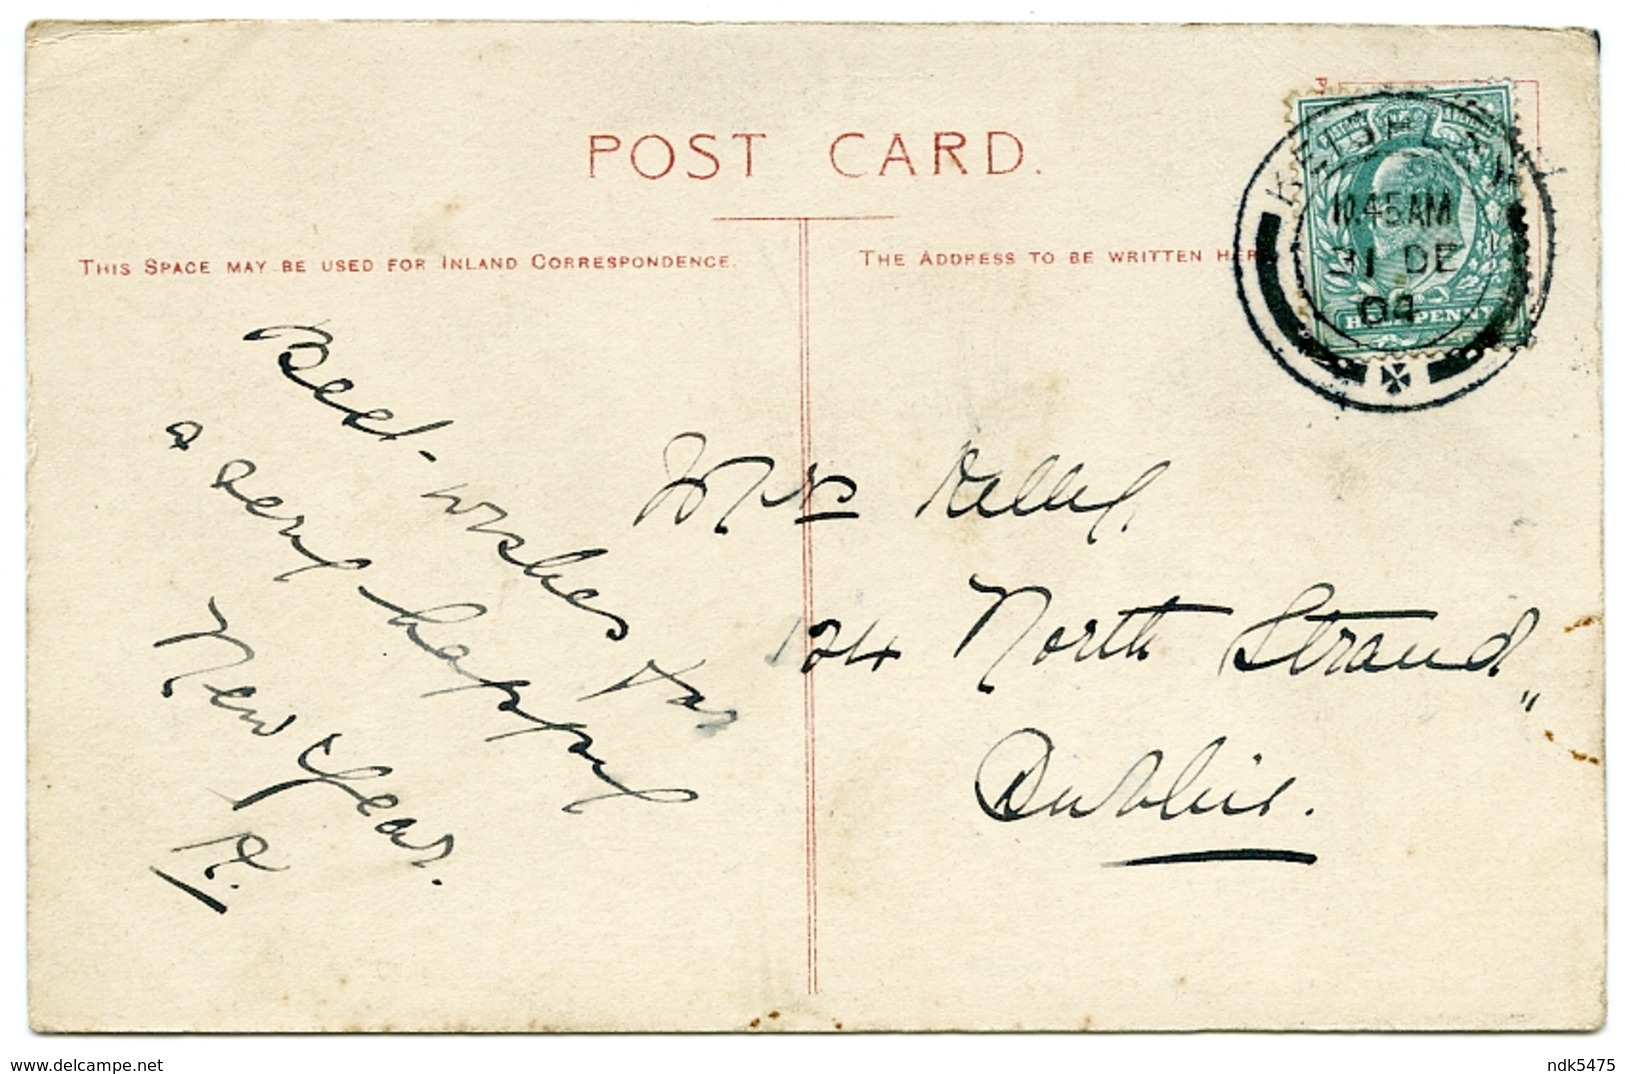 POST CARD.
THIS SPACE MAY BE USED FOR INLAND CORRESPONDENCE.
THE ADDRESS TO BE WRITTEN HERE
KEIGHLEY
10.45AM
31 DE
04
HALFPENNY
Best wishes for
a very happy
New Year.
R.
Mrs Kelly,
124 North Strand,,
Dublin.
https://www.delcampe.net
ndk5475